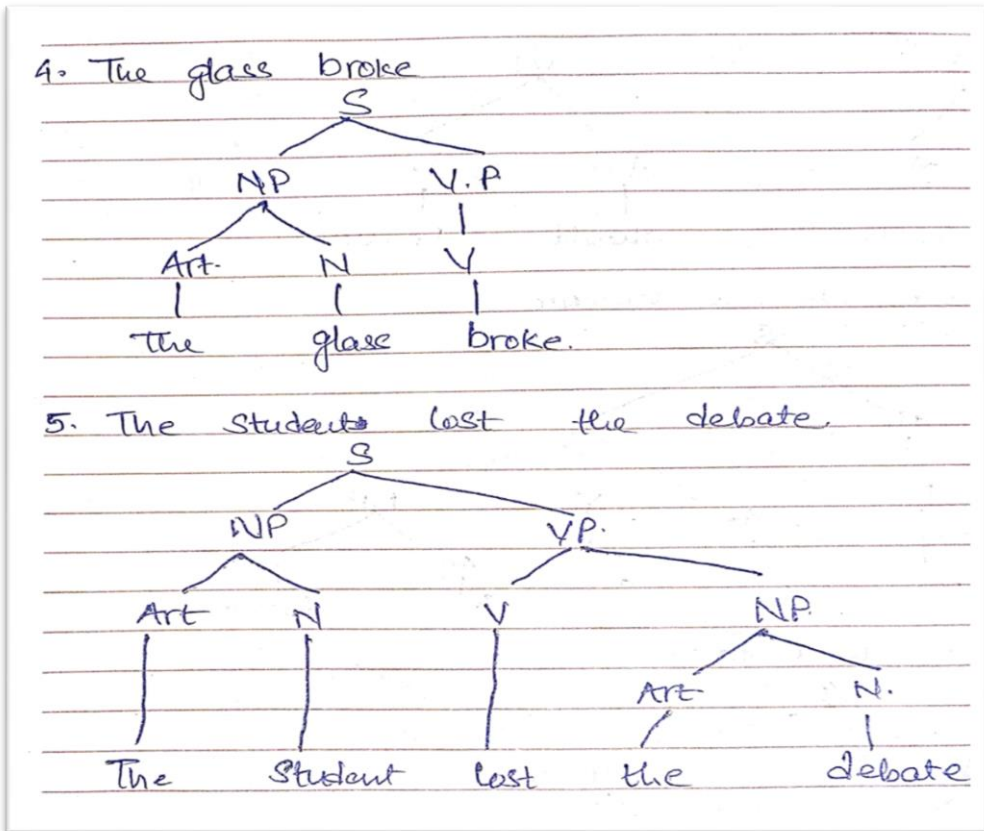 4. The glass broke
S
NP V.P
Art. N V
The glass broke.
5. The Student lost the debate.
S
NP VP.
Art N V NP
Art N.
The Student lost the debate